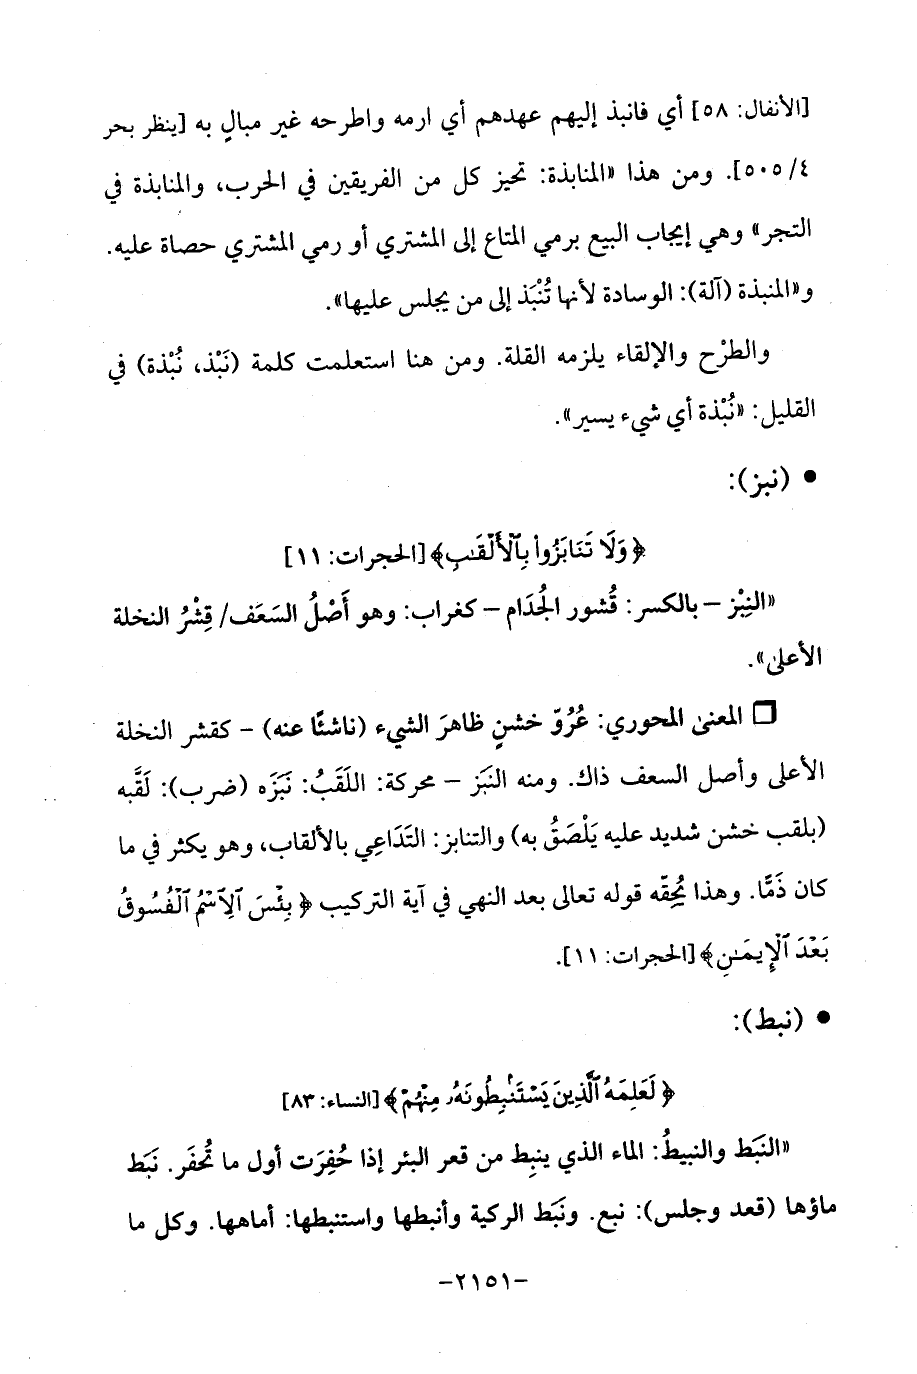 [الأنفال: ٥٨] أي فانبذ إليهم عهدهم أي ارمه واطرحه غير مبالٍ به [ينظر بحر
٤/ ٥٠٥]. ومن هذا «المنابذة: تحيز كل من الفريقين في الحرب، والمنابذة في
التجر» وهي إيجاب البيع برمي المتاع إلى المشتري أو رمي المشتري حصاة عليه.
و«المنبذة (آلة): الوسادة لأنها تُنْبَذ إلى من يجلس عليها».
والطرْح والإلقاء يلزمه القلة. ومن هنا استعلمت كلمة (نَبْذ، نُبْذة) في
القليل: «نُبْذة أي شيء يسير».
• (نبز):
﴿وَلَا تَنَابَزُواْ بِٱلْأَلْقَٰبِ﴾ [الحجرات: ١١]
«النِبْز – بالكسر: قُشور الجُدَام – كغراب: وهو أَصْلُ السَعَف/ قِشْرُ النخلة
الأعلى».
❒ المعنى المحوري: عُرُوّ خشنٍ ظاهرَ الشيء (ناشئًا عنه) – كقشر النخلة
الأعلى وأصل السعف ذاك. ومنه النَبَز – محركة: اللَقَبُ: نَبَزَه (ضرب): لَقَّبه
(بلقب خشن شديد عليه يَلْصَقُ به) والتنابز: التَدَاعِي بالألقاب، وهو يكثر في ما
كان ذَمًّا. وهذا يُحِقّه قوله تعالى بعد النهي في آية التركيب ﴿بِئْسَ ٱلِٱسْمُ ٱلْفُسُوقُ
بَعْدَ ٱلْإِيمَٰنِ﴾ [الحجرات: ١١].
• (نبط):
﴿لَعَلِمَهُ ٱلَّذِينَ يَسْتَنۢبِطُونَهُۥ مِنْهُمْ﴾ [النساء: ٨٣]
«النَبَط والنبيطُ: الماء الذي ينبِط من قعر البئر إذا حُفِرَت أول ما تُحفَر. نَبَط
ماؤها (قعد وجلس): نبع. ونَبَط الركية وأنبطها واستنبطها: أماهها. وكل ما
–٢١٥١–